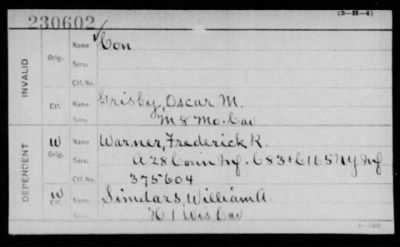 (3-H-4)
230602
Name Con
Orig. Serv.
Ctf. No.
INVALID
Name Grisby, Oscar M.
Ctf. Serv. M 8 Mo. Cav
W Name Warner, Frederick R.
Orig. Serv. A 28 Conn Inf. C 83 + C 165 NY Inf
Ctf. No. 375604
DEPENDENT
W Name Simdars, William A.
Ctf. Serv. H 1 Wis Cav